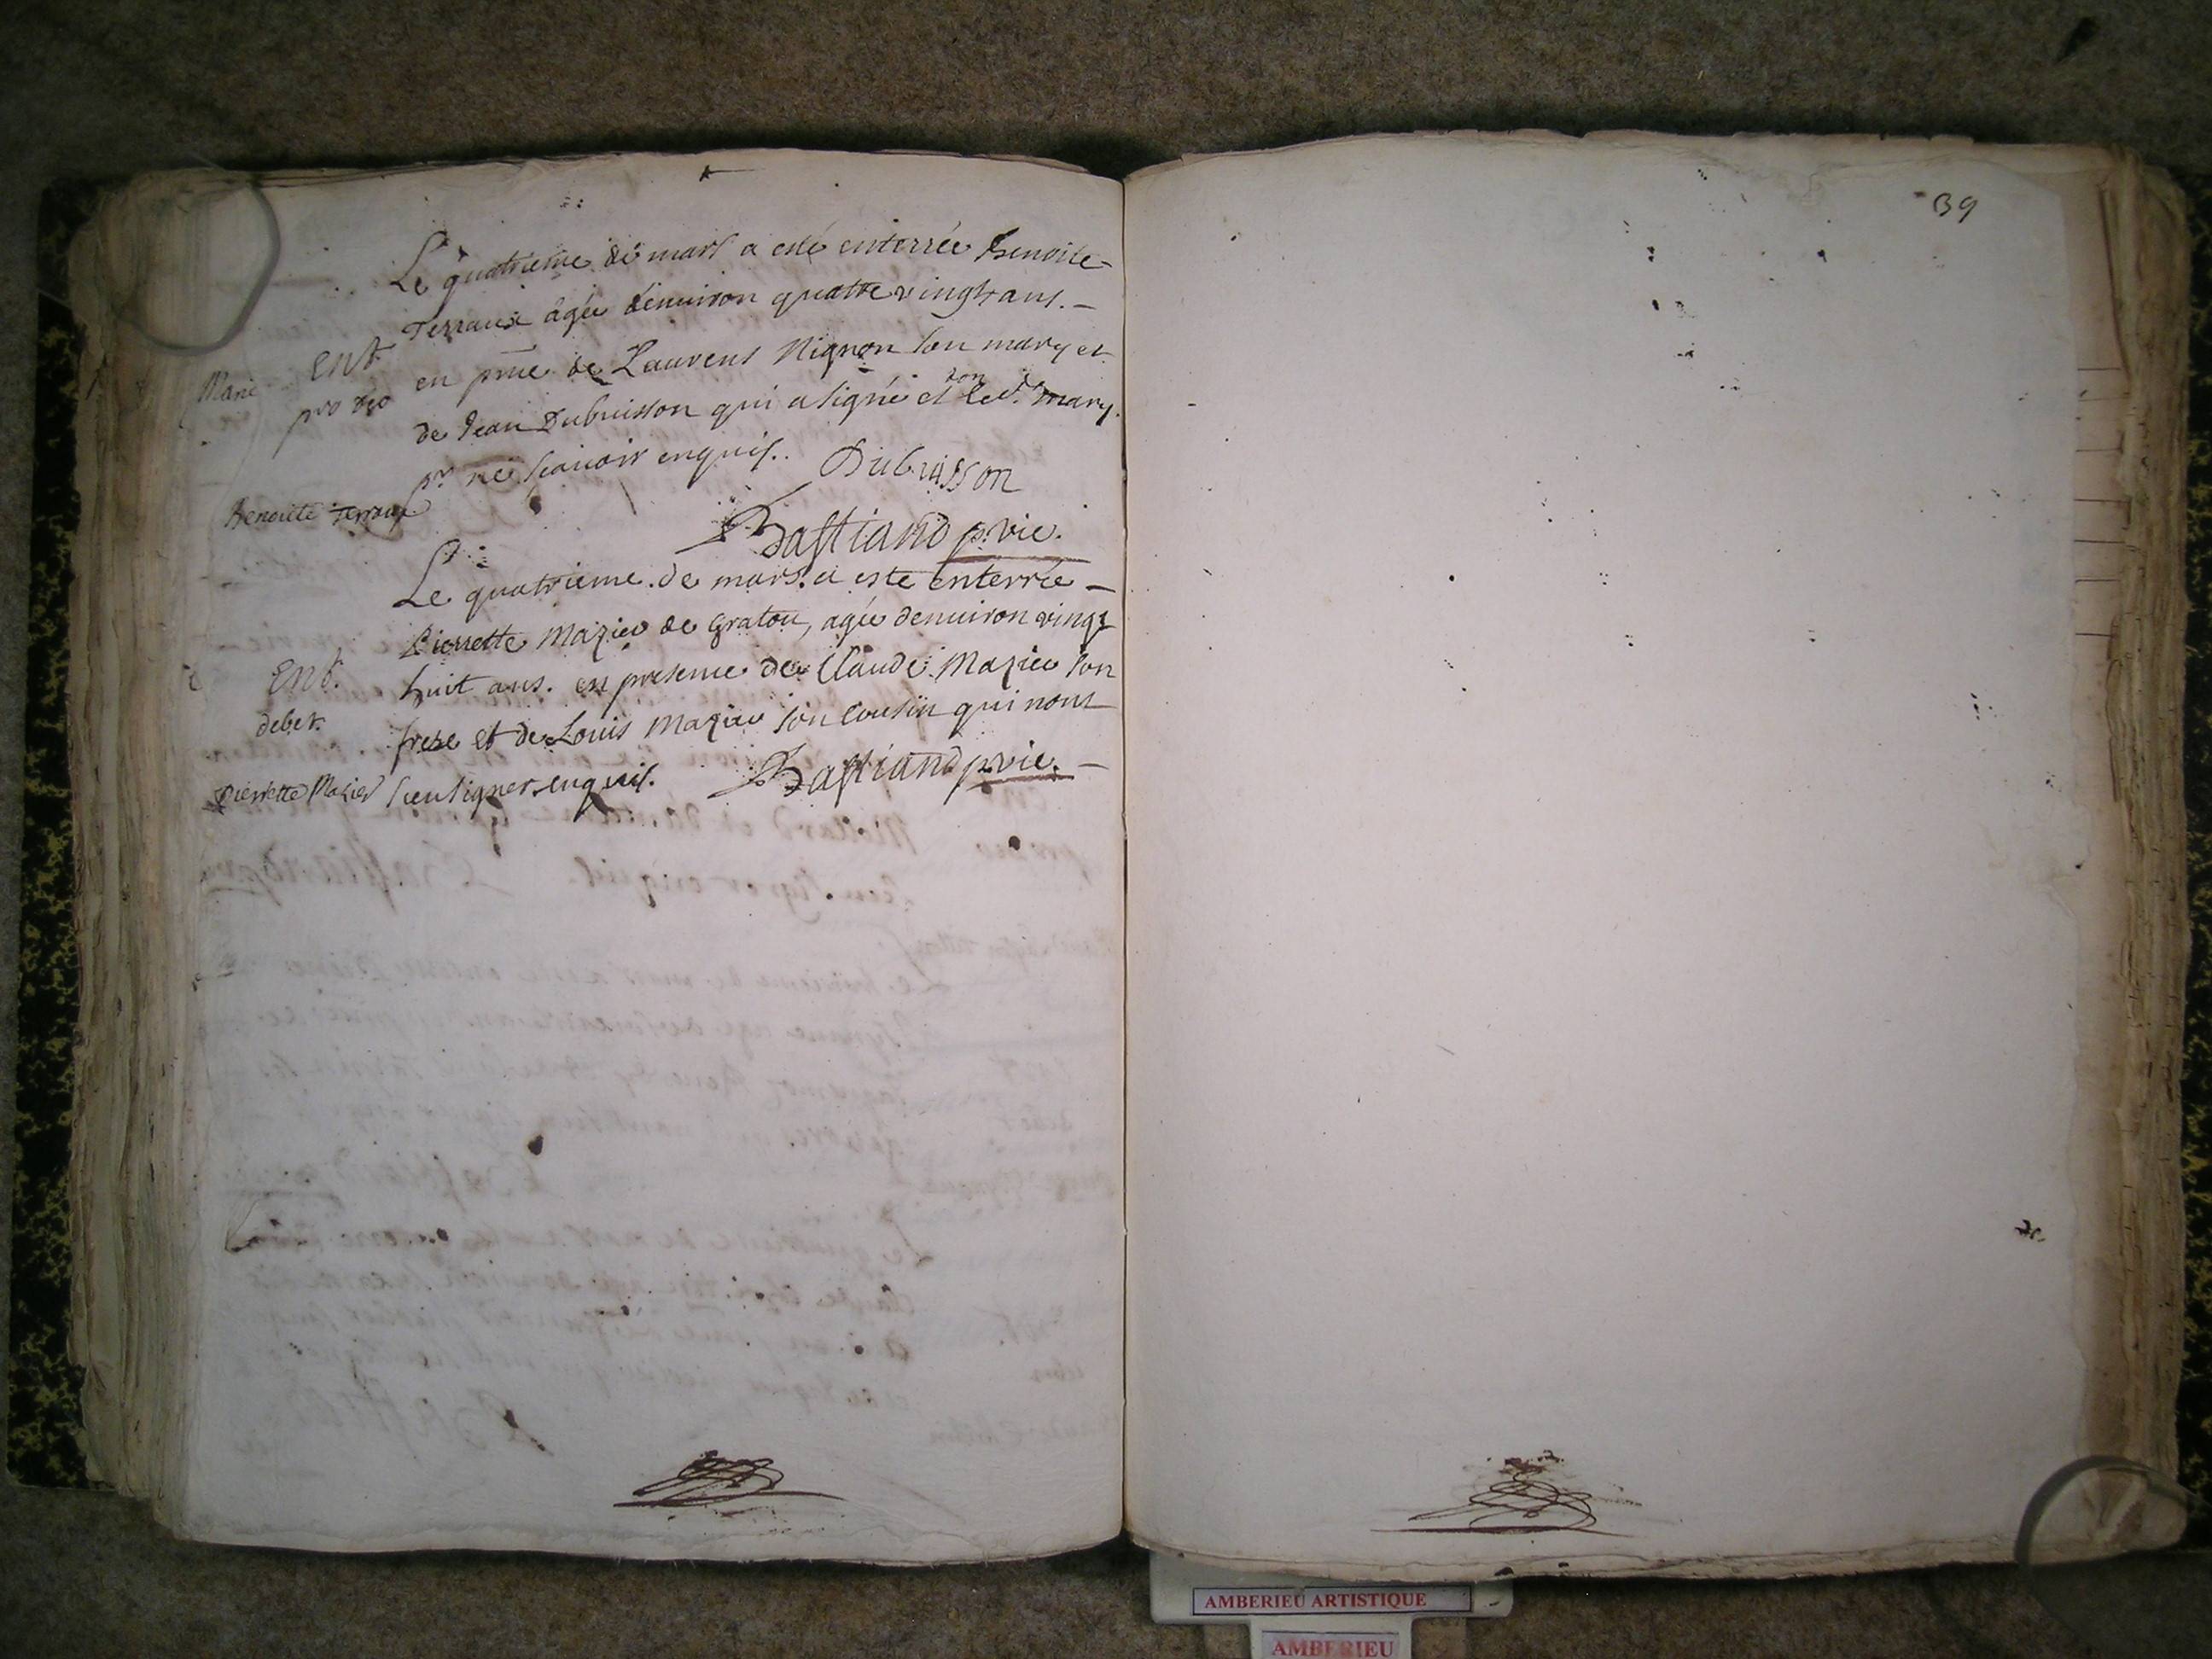 Le quatrieme de mars a esté enterrée Benoite
Terraux âgée denuiron quatre vingts ans. –
Ent.
en pnce de Laurens Nignon son mary et
pro deo
de Jean Dubuisson qui a signé et non led. mary.
pr ne scauoir enquis. Dubuisson
Benoite Terraux
Bastiand p. vic.
Le quatrieme de mars a este enterrée –
Pierrette Mazieu de Gratou, agée denuiron vingt
Ent.
huit ans. en presence de Claude Mazieu son
debet.
frere et de Louis Mazieu son Cousin qui nont
Pierrette Mazieu
sceu signer enquis. Bastiand p. vic. –
39
AMBERIEU ARTISTIQUE
AMBERIEU